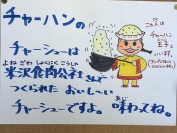 チャーハンの
チャーシューは
よねざわしょくにくこうしゃ
米沢食肉公社さんで
つくられた おいしーい
チャーシューですよ。味わってね。
あじ
この人は
チャーハン
王子と
いいます。